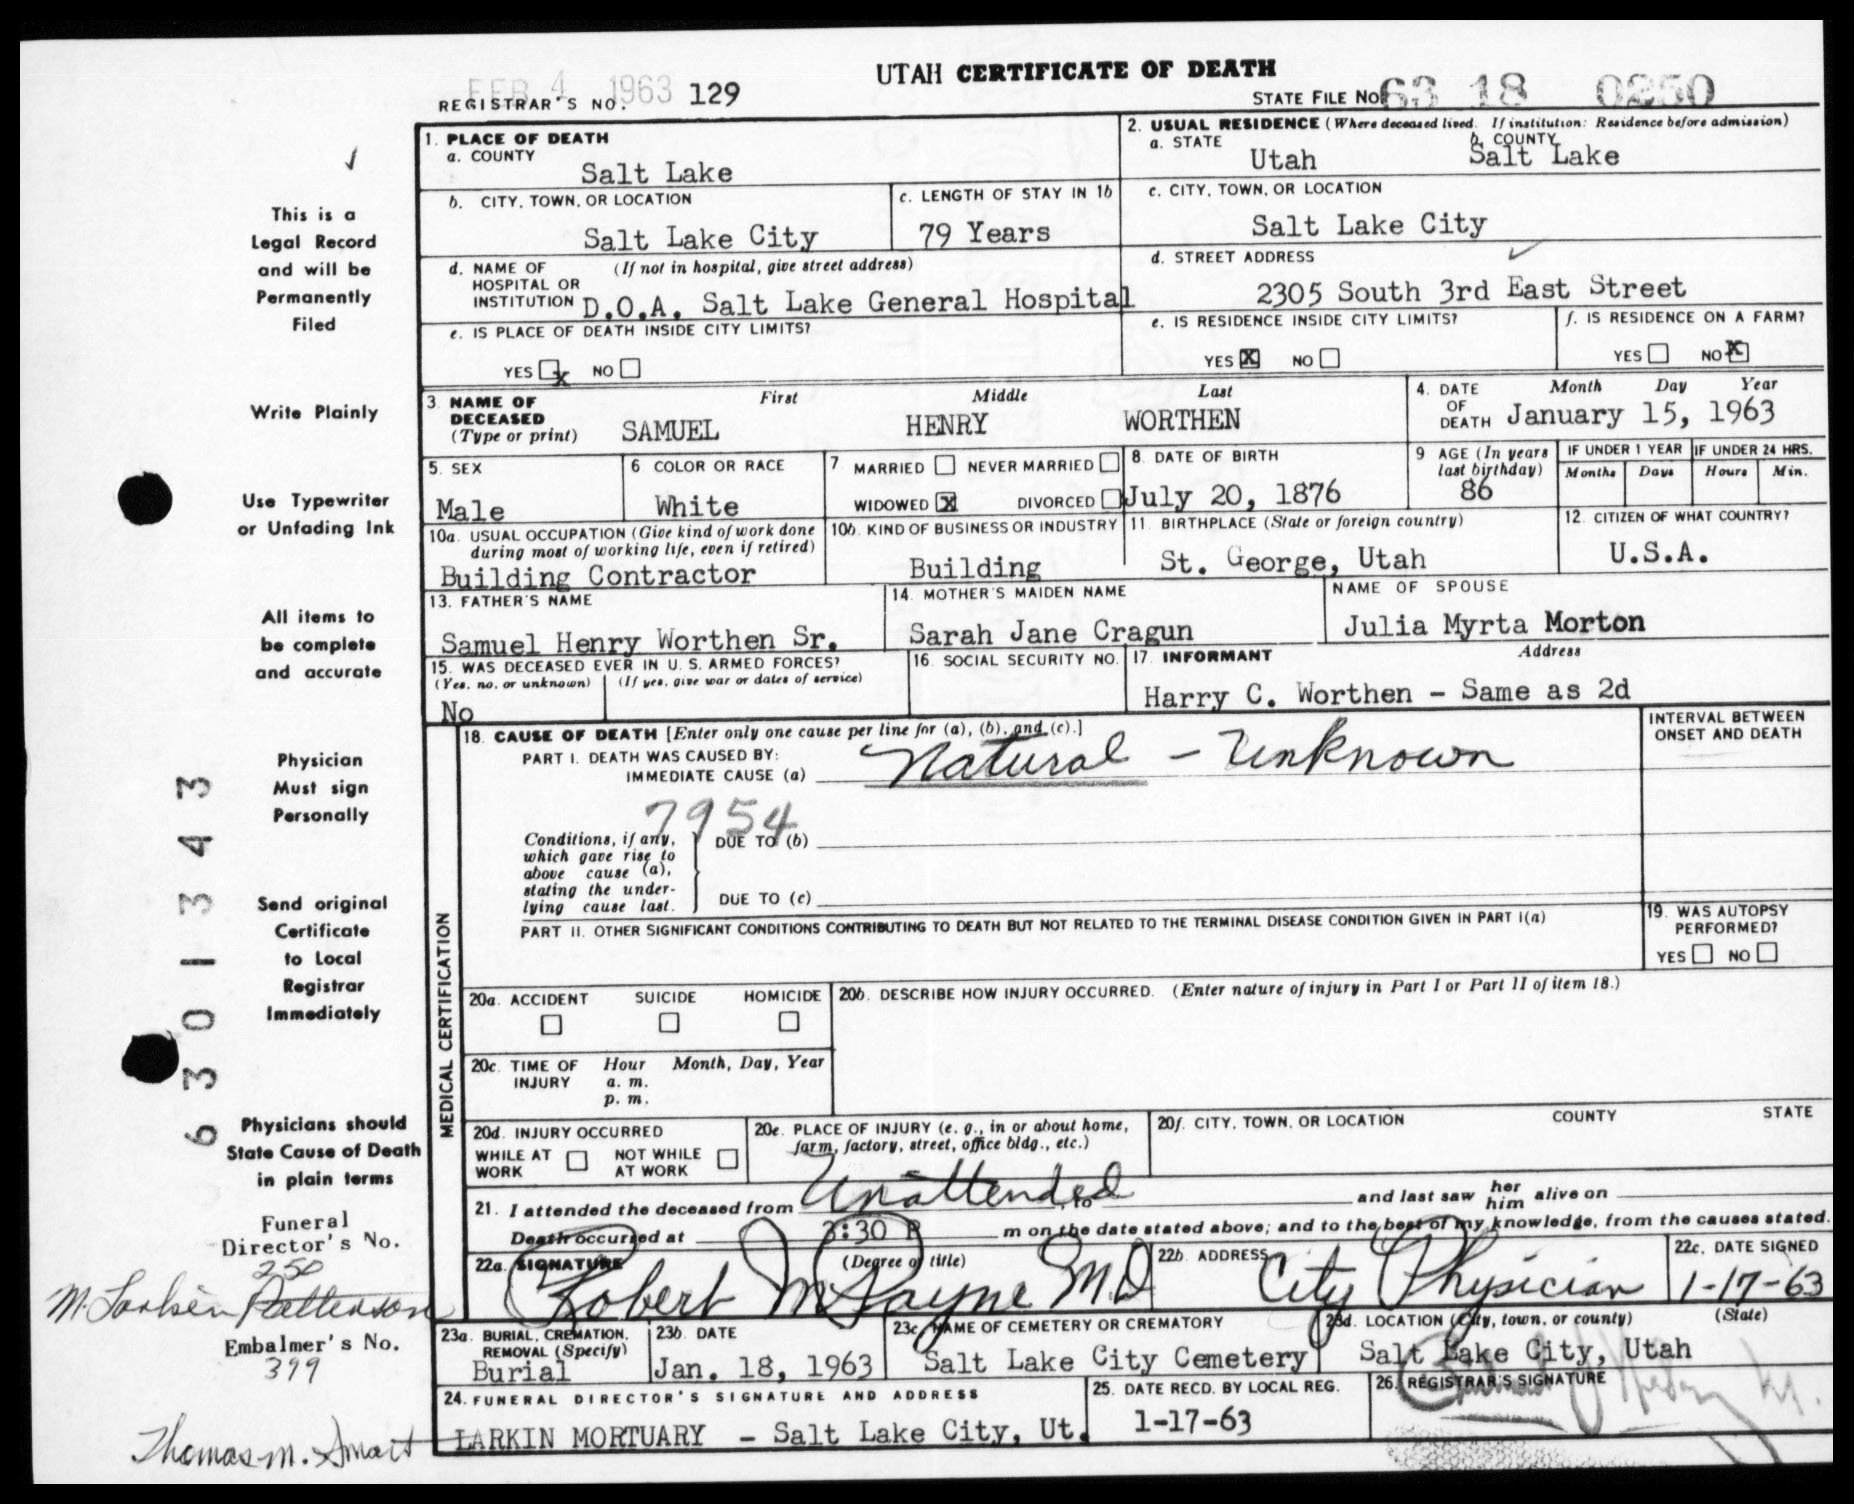 FEB 4 1963
UTAH CERTIFICATE OF DEATH
REGISTRAR'S NO. 129
STATE FILE NO. 63 18 0250
1. PLACE OF DEATH
a. COUNTY
Salt Lake
2. USUAL RESIDENCE (Where deceased lived. If institution: Residence before admission)
a. STATE
Utah
b. COUNTY
Salt Lake
b. CITY, TOWN, OR LOCATION
Salt Lake City
c. LENGTH OF STAY IN 1b
79 Years
c. CITY, TOWN, OR LOCATION
Salt Lake City
d. NAME OF HOSPITAL OR INSTITUTION
(If not in hospital, give street address)
D.O.A. Salt Lake General Hospital
d. STREET ADDRESS
2305 South 3rd East Street
e. IS PLACE OF DEATH INSIDE CITY LIMITS?
YES X NO
e. IS RESIDENCE INSIDE CITY LIMITS?
YES X NO
f. IS RESIDENCE ON A FARM?
YES NO X
3. NAME OF DECEASED (Type or print)
First Middle Last
SAMUEL HENRY WORTHEN
4. DATE OF DEATH
Month Day Year
January 15, 1963
5. SEX
Male
6 COLOR OR RACE
White
7 MARRIED NEVER MARRIED
WIDOWED X DIVORCED
8. DATE OF BIRTH
July 20, 1876
9 AGE (In years last birthday)
86
IF UNDER 1 YEAR
Months Days
IF UNDER 24 HRS.
Hours Min.
10a. USUAL OCCUPATION (Give kind of work done during most of working life, even if retired)
Building Contractor
10b. KIND OF BUSINESS OR INDUSTRY
Building
11. BIRTHPLACE (State or foreign country)
St. George, Utah
12. CITIZEN OF WHAT COUNTRY?
U.S.A.
13. FATHER'S NAME
Samuel Henry Worthen Sr.
14. MOTHER'S MAIDEN NAME
Sarah Jane Cragun
NAME OF SPOUSE
Julia Myrta Morton
15. WAS DECEASED EVER IN U. S. ARMED FORCES?
(Yes, no, or unknown) (If yes, give war or dates of service)
No
16. SOCIAL SECURITY NO.
17. INFORMANT Address
Harry C. Worthen - Same as 2d
MEDICAL CERTIFICATION
18. CAUSE OF DEATH [Enter only one cause per line for (a), (b), and (c).]
PART I. DEATH WAS CAUSED BY:
IMMEDIATE CAUSE (a) Natural - Unknown
INTERVAL BETWEEN ONSET AND DEATH
7954
Conditions, if any, which gave rise to above cause (a), stating the underlying cause last.
DUE TO (b)
DUE TO (c)
PART II. OTHER SIGNIFICANT CONDITIONS CONTRIBUTING TO DEATH BUT NOT RELATED TO THE TERMINAL DISEASE CONDITION GIVEN IN PART I(a)
19. WAS AUTOPSY PERFORMED?
YES NO
20a. ACCIDENT SUICIDE HOMICIDE
20b. DESCRIBE HOW INJURY OCCURRED. (Enter nature of injury in Part I or Part II of item 18.)
20c. TIME OF INJURY
Hour Month, Day, Year
a. m.
p. m.
20d. INJURY OCCURRED
WHILE AT WORK
NOT WHILE AT WORK
20e. PLACE OF INJURY (e. g., in or about home, farm, factory, street, office bldg., etc.)
20f. CITY, TOWN, OR LOCATION COUNTY STATE
21. I attended the deceased from Unattended, to and last saw her him alive on
Death occurred at 3:30 P m on the date stated above; and to the best of my knowledge, from the causes stated.
22a. SIGNATURE (Degree or title)
Robert M Payne M.D
22b. ADDRESS
City Physician
22c. DATE SIGNED
1-17-63
23a. BURIAL, CREMATION, REMOVAL (Specify)
Burial
23b. DATE
Jan. 18, 1963
23c. NAME OF CEMETERY OR CREMATORY
Salt Lake City Cemetery
23d. LOCATION (City, town, or county) (State)
Salt Lake City, Utah
24. FUNERAL DIRECTOR'S SIGNATURE AND ADDRESS
LARKIN MORTUARY - Salt Lake City, Ut.
25. DATE RECD. BY LOCAL REG.
1-17-63
26. REGISTRAR'S SIGNATURE
This is a
Legal Record
and will be
Permanently
Filed
Write Plainly
Use Typewriter
or Unfading Ink
All items to
be complete
and accurate
Physician
Must sign
Personally
Send original
Certificate
to Local
Registrar
Immediately
Physicians should
State Cause of Death
in plain terms
Funeral
Director's No.
250
M. Larkin Patterson
Embalmer's No.
399
Thomas M. Smart
6301343